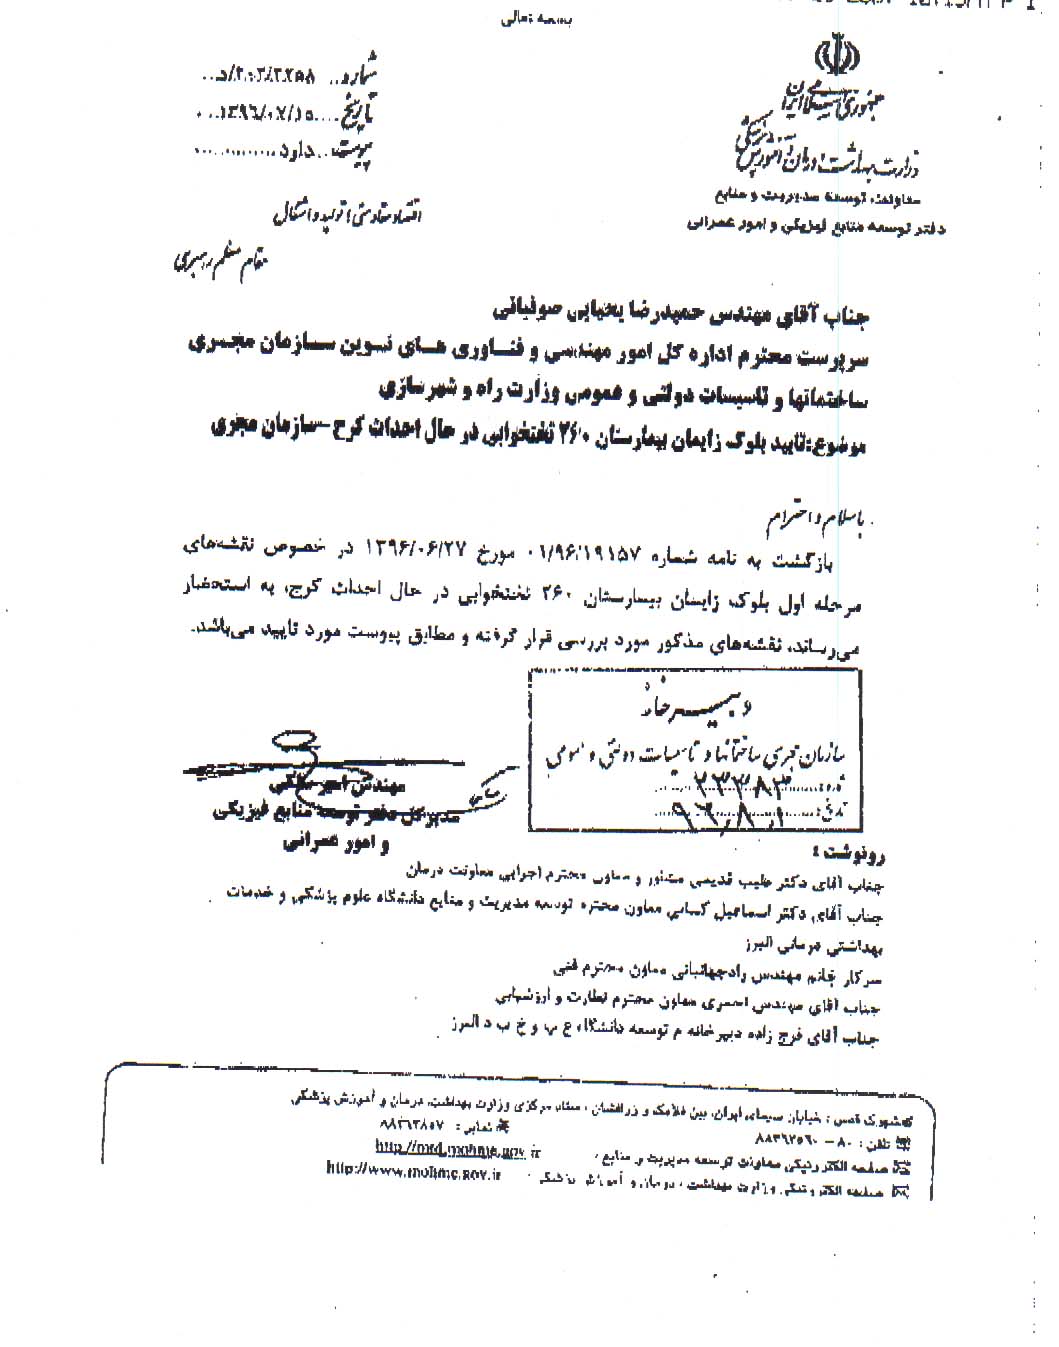 بسمه تعالی
جمهوری اسلامی ایران
وزارت بهداشت، درمان و آموزش پزشکی
معاونت توسعه مدیریت و منابع
دفتر توسعه منابع فیزیکی و امور عمرانی
شماره
تاریخ ....۱۳۹۶/۰۷/۱۵
پیوست...دارد
اقتصاد مقاومتی؛ تولید و اشتغال
مقام معظم رهبری
جناب آقای مهندس حمیدرضا یحیایی صوفیانی
سرپرست محترم اداره کل امور مهندسی و فناوری های نوین سازمان مجری
ساختمانها و تاسیسات دولتی و عمومی وزارت راه و شهرسازی
موضوع:تایید بلوک زایمان بیمارستان ۲۶۰ تختخوابی در حال احداث کرج-سازمان مجری
باسلام و احترام
بازگشت به نامه شماره ۰۱/۹۶/۱۹۱۵۷ مورخ ۱۳۹۶/۰۶/۲۷ در خصوص نقشه‌های
مرحله اول بلوک زایمان بیمارستان ۲۶۰ تختخوابی در حال احداث کرج، به استحضار
می‌رساند، نقشه‌های مذکور مورد بررسی قرار گرفته و مطابق پیوست مورد تایید می‌باشد.
دبیرخانه
سازمان مجری ساختمانها و تاسیسات دولتی و عمومی
شماره: ۲۳۳۸۳
تاریخ: ۹۶،۸،۱
مهندس امیر ملکی
مدیرکل دفتر توسعه منابع فیزیکی
و امور عمرانی
رونوشت :
جناب آقای دکتر طبیب قدیمی مشاور و معاون محترم اجرایی معاونت درمان
جناب آقای دکتر اسماعیل کسایی معاون محترم توسعه مدیریت و منابع دانشگاه علوم پزشکی و خدمات
بهداشتی درمانی البرز
سرکار خانم مهندس رادجهانبانی معاون محترم فنی
جناب آقای مهندس معاون محترم نظارت و ارزشیابی
جناب آقای فرج زاده دبیرخانه م توسعه دانشگاه ع پ و خ ب د البرز
شهرک قدس : خیابان سیمای ایران، بین فلامک و زرافشان ، ستاد مرکزی وزارت بهداشت، درمان و آموزش پزشکی
تلفن : ۸۰ – ۸۸۳۶۲۵۶۰ نمابر :
صفحه الکترونیکی معاونت توسعه مدیریت و منابع : http://mrd.mohme.gov.ir
صفحه الکترونیکی وزارت بهداشت ، درمان و آموزش پزشکی : http://www.mohme.gov.ir